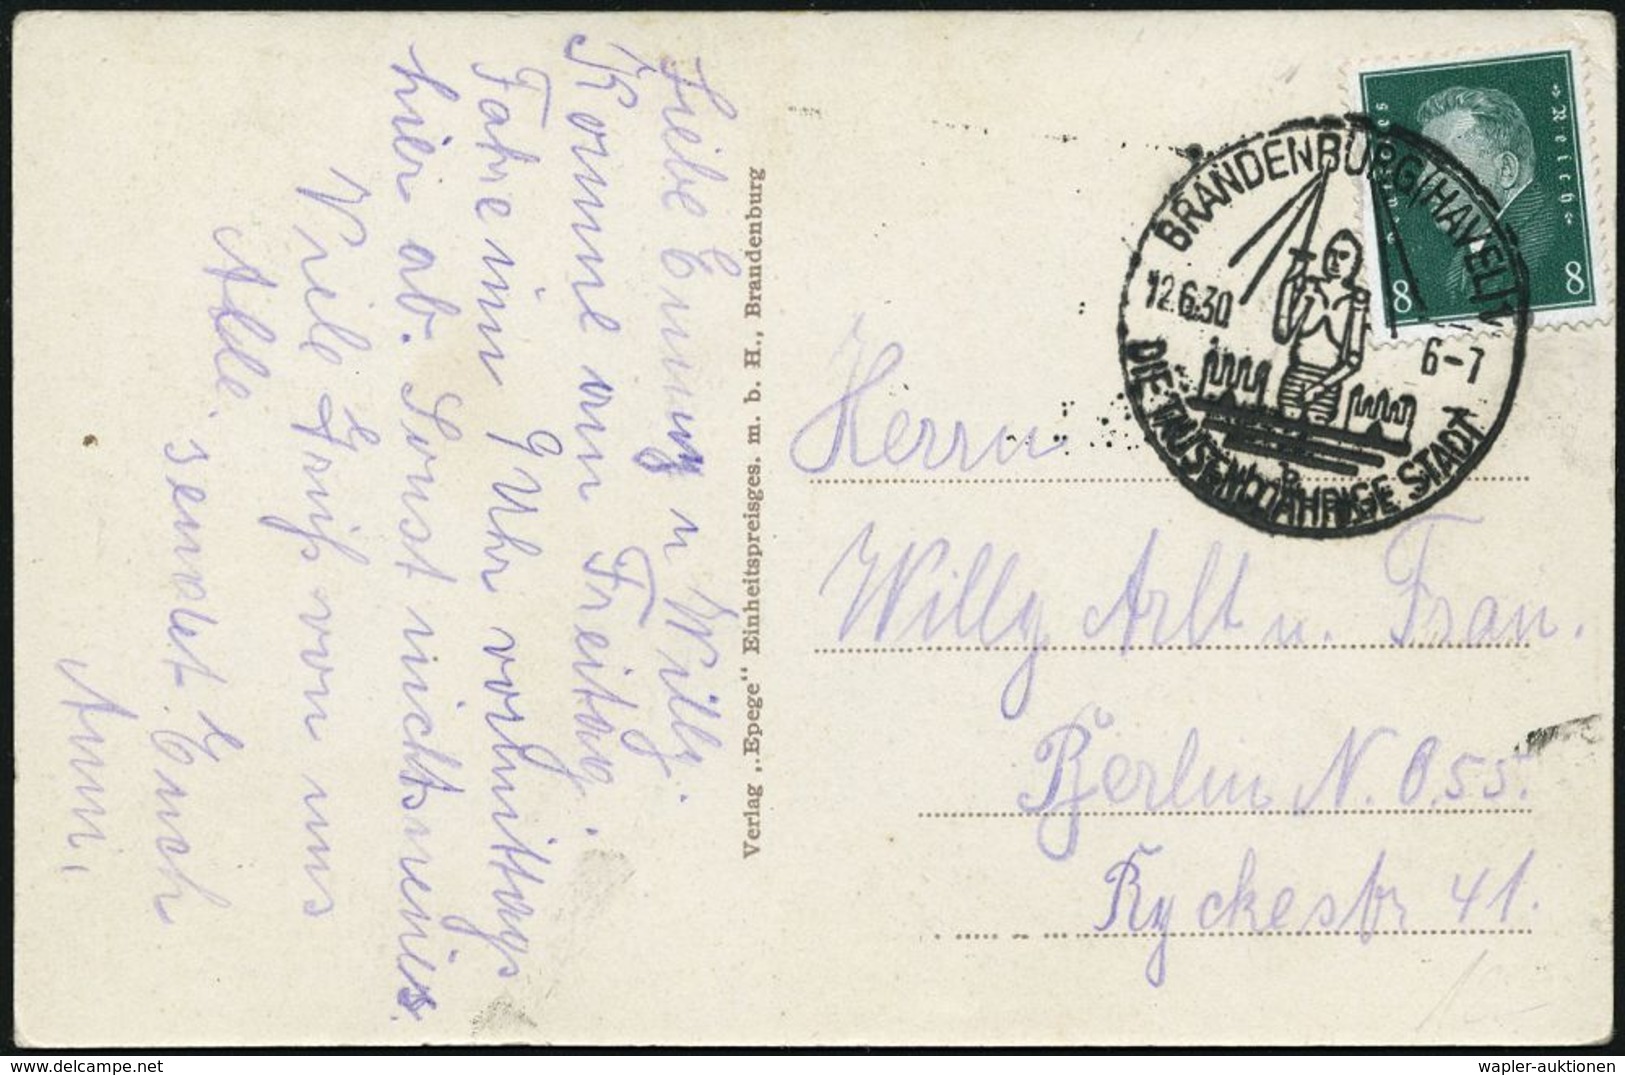 Liebe Emmy u Willy.
Komme am Freitag.
Fahre um 9 Uhr vormittags
hier ab. Sonst nichts neues.
Viele Grüße von uns
Alle. sendet Euch
Anni.
Verlag „Epege“ Einheitspreisges. m. b. H., Brandenburg
Deutsches Reich
8 8
BRANDENBURG (HAVEL) 1
12.6.30
6-7
DIE TAUSENDJÄHRIGE STADT
Herrn
Willy Arlt u. Frau.
Berlin N.O.55.
Ryckestr 41.
wapler-auktionen